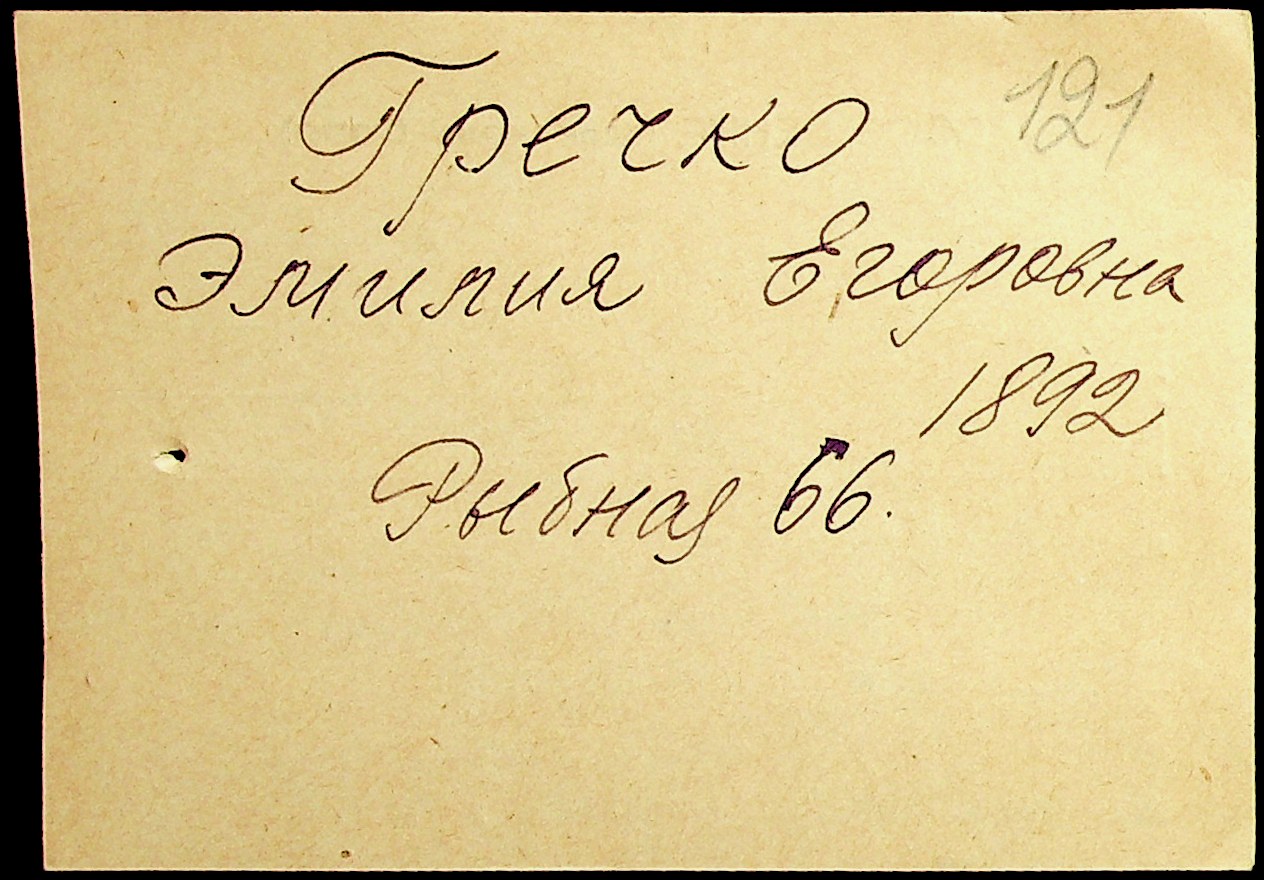 Гречко 121
Эмилия Егоровна
1892
Рыбная 66.